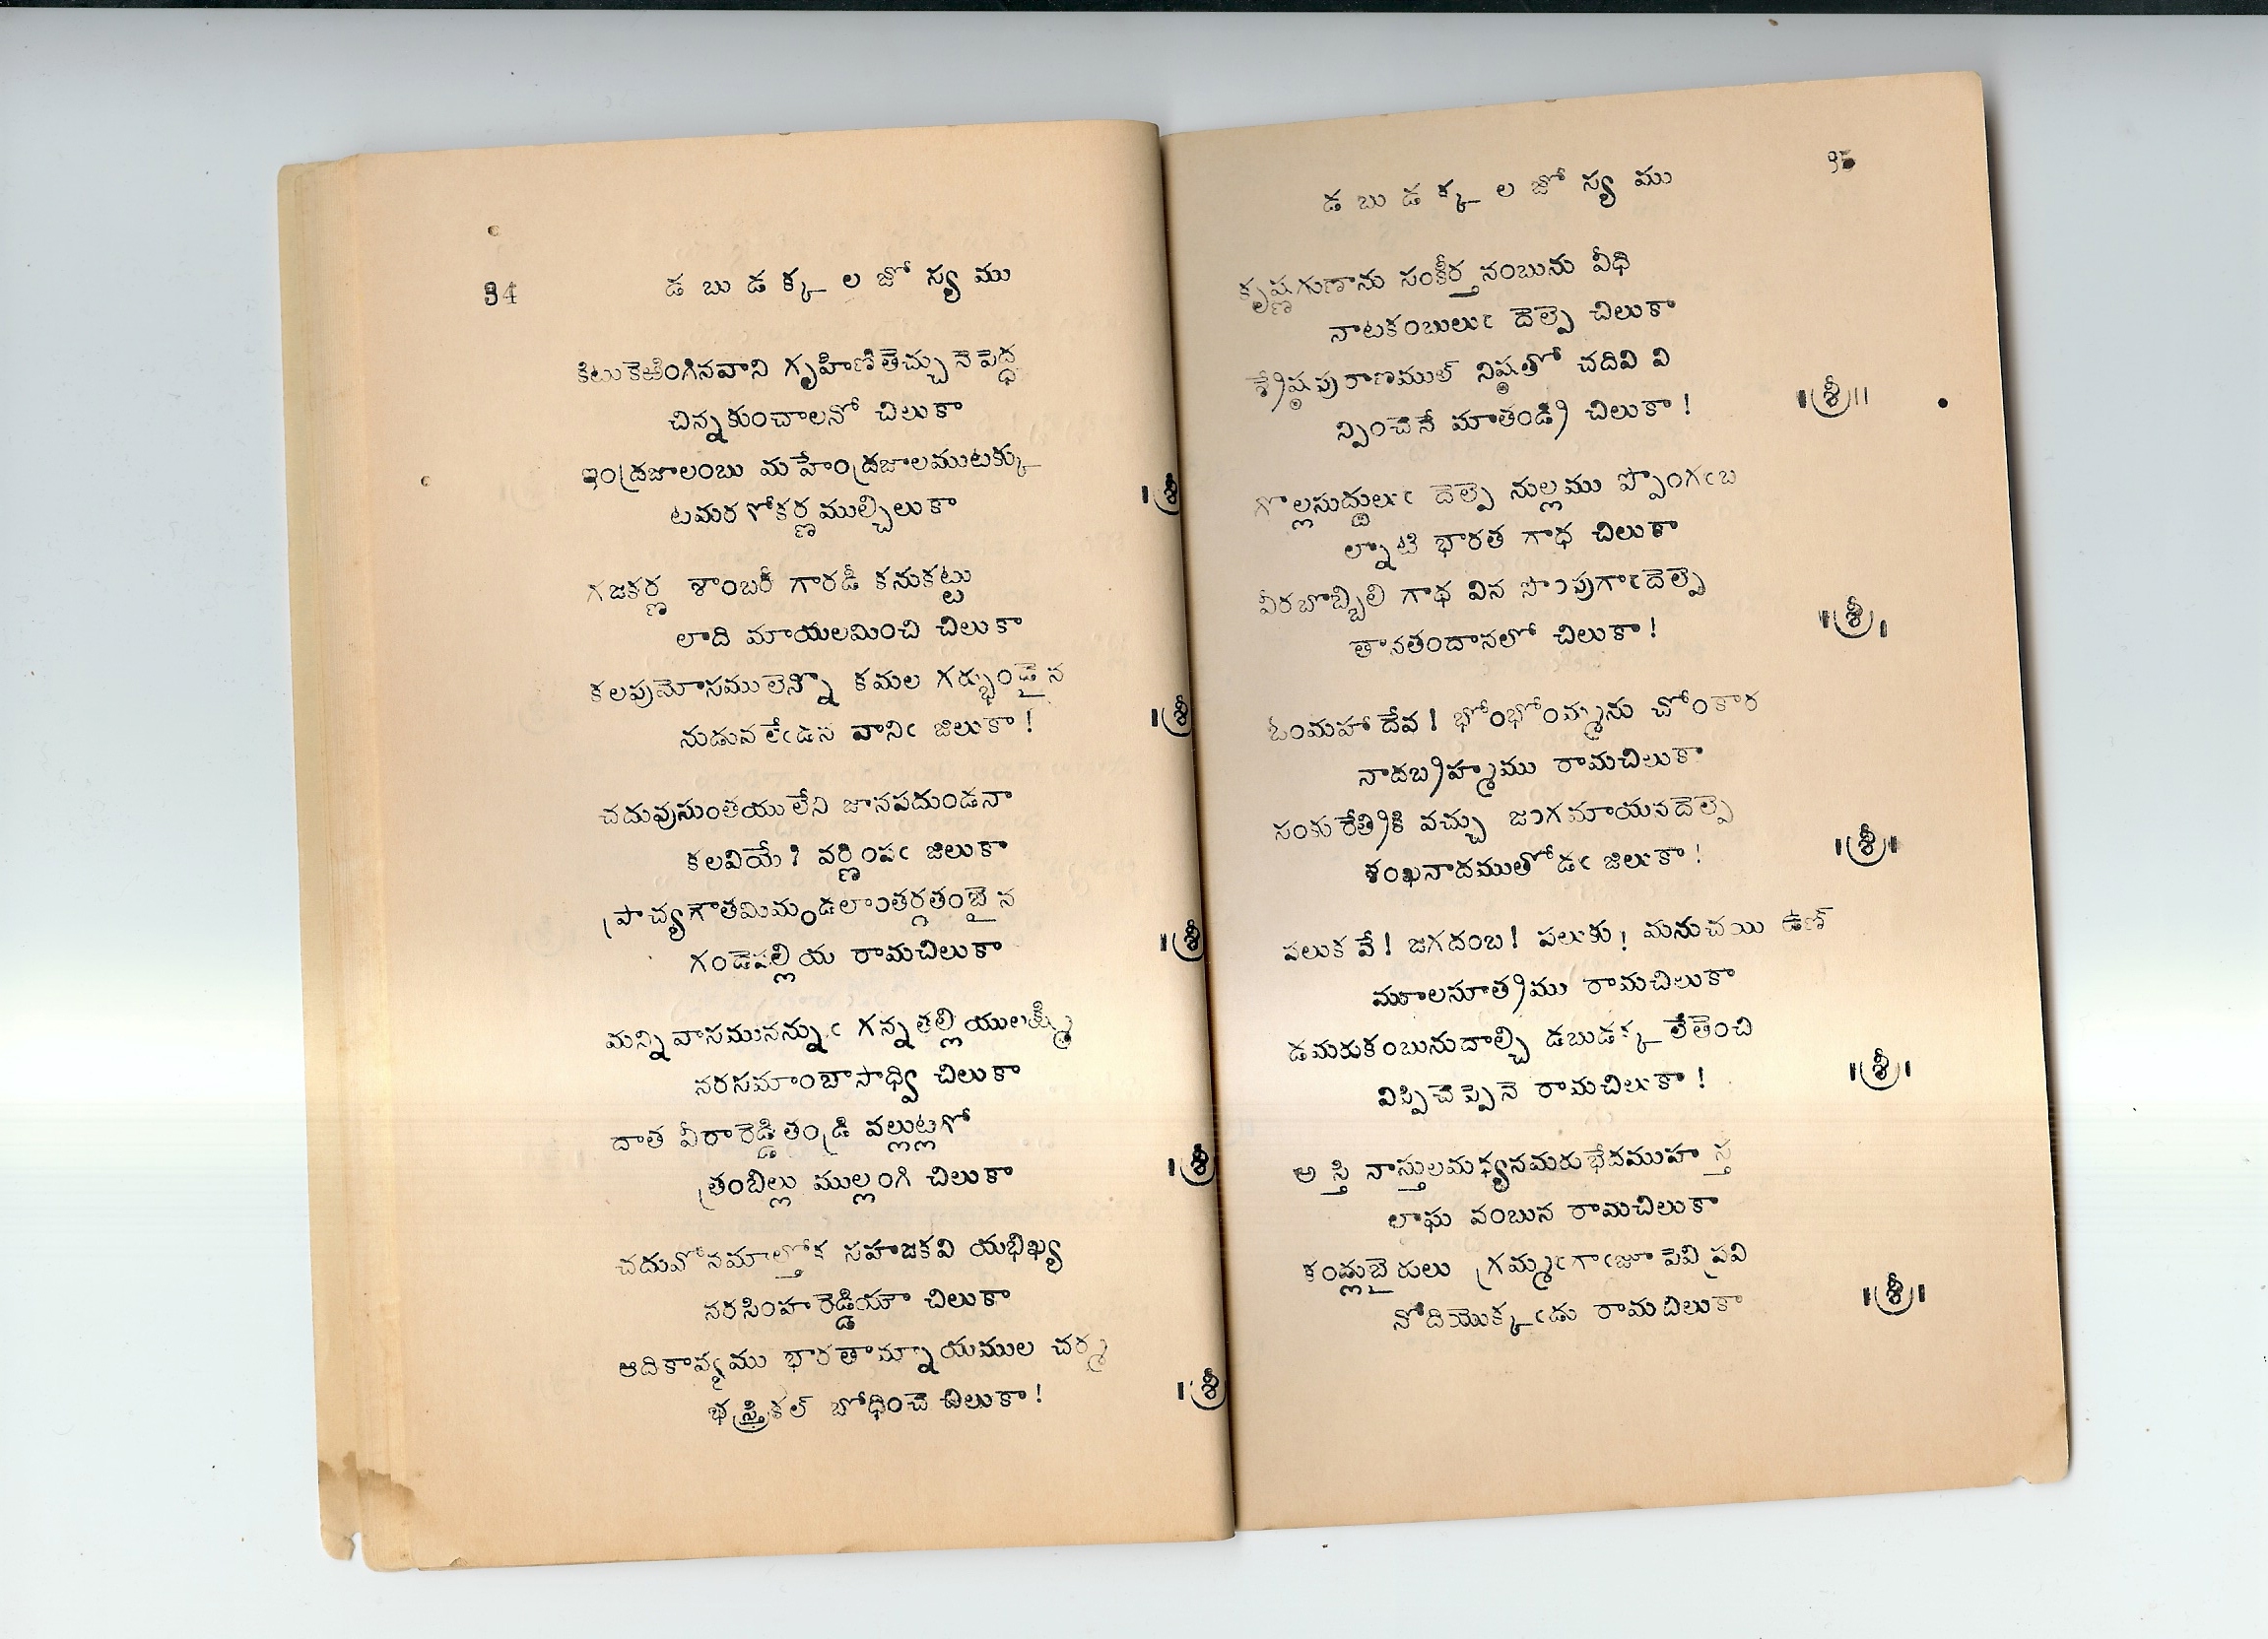 94
డ బు డ క్క ల జో స్య ము
కిటుకెఱింగినవాని గృహిణితెచ్చునె పెద్ద
చిన్నకుంచాలనో చిలుకా
ఇంద్రజాలంబు మహేంద్రజాలముటక్కు
టమర గోకర్ణముల్చిలుకా ॥శ్రీ
గజకర్ణ శాంబరీ గారడీ కనుకట్టు
లాది మాయలమించి చిలుకా
కలపుమోసములెన్నొ కమల గర్భుండైన
నుడువలేఁడన వానిఁ జిలుకా ! ॥శ్రీ
చదువుసుంతయులేని జానపదుండనా
కలవియే ? వర్ణింపఁ జిలుకా
ప్రాచ్యగౌతమిమండలాంతర్గతంబైన
గండెపల్లియ రామచిలుకా ॥శ్రీ
మన్నివాసమునన్నుఁ గన్నతల్లియులక్ష్మి
నరసమాంబాసాధ్వి చిలుకా
దాత వీరారెడ్డితండ్రి వల్లుట్లగో
త్రంబిల్లు ముల్లంగి చిలుకా ॥శ్రీ
చదువోనమాల్తోక సహజకవి యభిఖ్య
నరసింహరెడ్డియౌ చిలుకా
ఆదికావ్యము భారతామ్నాయముల చర్మ
భస్త్రికల్ బోధించె చిలుకా ! ॥శ్రీ
డ బు డ క్క ల జో స్య ము
95
కృష్ణగుణాను సంకీర్తనంబును వీధి
నాటకంబులుఁ దెల్పె చిలుకా
శ్రేష్ఠపురాణముల్ నిష్ఠతో చదివి వి
న్పించెనే మాతండ్రి చిలుకా ! ॥శ్రీ॥
గొల్లసుద్దులుఁ దెల్పె నుల్లము ప్పొంగఁబ
ల్నాటి భారత గాధ చిలుకా
వీరబొబ్బిలి గాథ విన సొంపుగాఁదెల్పె
తానతందానలో చిలుకా ! ॥శ్రీ॥
ఓంమహాదేవ ! భోంభోంమ్మను చోంకార
నాదబ్రహ్మము రామచిలుకా
సంకురేత్రికి వచ్చు జాగమాయనదెల్పె
శంఖనాదముతోడఁ జిలుకా ! ॥శ్రీ॥
పలుకవే ! జగదంబ ! పలుకు ! మనుచయి ఉణ్
మూలసూత్రము రామచిలుకా
డమరుకంబునుదాల్చి డబుడక్కలేతెంచి
విప్పిచెప్పెనె రామచిలుకా ! ॥శ్రీ॥
అస్తి నాస్తులమధ్యనమరుభేదముహస్త
లాఘవంబున రామచిలుకా
కండ్లుబైరులు గ్రమ్మఁగాఁజూపెవిప్రవి
నోదియొక్కఁడు రామచిలుకా ॥శ్రీ॥